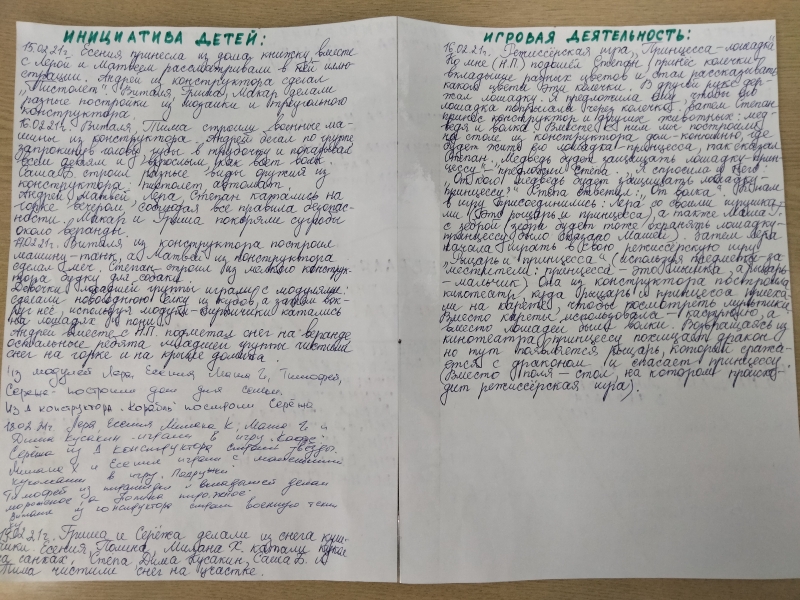 ИНИЦИАТИВА ДЕТЕЙ:
15.02.21г. Есения принесла из дома книжку, вместе
с Лерой и Матвеем рассматривали в ней иллю-
страции. Андрей из конструктора сделал
"пистолет". Виталя, Гриша, Макар делали
разные постройки из мозаики и треугольного
конструктора.
16.02.21г. Виталя, Тима строили военные ма-
шины из конструктора. Андрей бегал по группе
запрокинув голову, губы в трубочку и показывал
всем детям и взрослым как воет волк.
Саша В строил разные виды оружия из
конструктора: пистолет, автомат.
Андрей, Матвей, Лера, Степан катались на
горке вечером, соблюдая все правила безопас-
ности. Макар и Гриша покоряли сугробы
около веранды.
17.02.21г. Виталя из конструктора построил
машину-танк, а Матвей из конструктора
сделал меч. Степан строил из мелкого конструк-
тора будку для собаки.
Девочки младшей группы играли с модулями:
сделали новогоднюю ёлку из кубов, а затем вок-
руг неё, используя модули-кирпичики катались
на лошадях и пони.
Андрей вместе с Н.П. подметал снег на веранде
остальные ребята младшей группы чистили
снег на горке и на крыше домика.
Из модулей Лера, Есения, Маша Г., Тимофей,
Сережа построили дом для семьи.
Из конструктора корабль построили Серёжа
18.02.21г. Лера Есения Милана К, Маша Г и
Дима Кусакин играли в игру "Кафе"
Серёжа из конструктора строил звёзды.
Милана Х и Есения играли с маленькими
куколками в игру "Подружки"
Тимофей из пирамидки и вкладышей делал
мороженое, а Полина пирожное.
Виталя из конструктора строил военную техни
ку
19.02.21г. Гриша и Серёжа делали из снега кули-
чики. Есения, Полина, Милана Х. катали кукол
на санках, Степа, Дима Кусакин, Саша В. и
Тима чистили снег на участке.
ИГРОВАЯ ДЕЯТЕЛЬНОСТЬ:
16.02.21г. Режиссёрская игра "Принцесса-лошадка"
Ко мне (Н.П) подошёл Степан (принёс колечки-
вкладыши разных цветов и стал рассказывать
какого цвета эти колечки. В другой руке дер-
жал лошадку. Я предложила ему, чтобы его
лошадка попрыгала через колечки, затем Степан
принёс конструктор и других животных: мед-
ведя и волка. Вместе с ним мы построили
на столе из конструктора дом-конюшню, где
будет жить его лошадка-принцесса, так сказал
Степан. "Медведь будет защищать лошадку-прин-
цессу"- предложил Степа. Я спросила у него:
"От кого медведь будет защищать лошадку-
принцессу?" Степа ответил: "От волка". К нам
в игру присоединились: Лера со своими игрушка-
ми (Это рыцарь и принцесса), а также Маша Г.
с зеброй (зебра будет тоже охранять лошадку-
принцессу было сказано Машей). Затем Лера
начала играть в свою режиссёрскую игру
"Рыцарь и принцесса" (используя предметы-за-
местители: принцесса - это мышка, а рыцарь
-мальчик). Она из конструктора построила
кинотеатр, куда рыцарь и принцесса приеха-
ли на карете, чтобы посмотреть мультики.
Вместо кареты использовала - кастрюлю, а
вместо лошадей были волки. Возвращаясь из
кинотеатра, принцессу похищает дракон
но тут появляется рыцарь, который сража-
ется с драконом и спасает принцессу.
(Вместо поля - стол, на котором происхо-
дит режиссёрская игра).